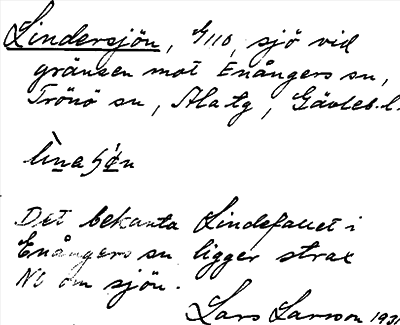 Lindersjön, G/110, sjö vid
gränsen mot Enångers sn,
Trönö sn, Ala tg, Gävleb.l.
Det bekanta Lindefallet i
Enångers sn ligger strax
NV om sjön.
Lars Larsson 1931